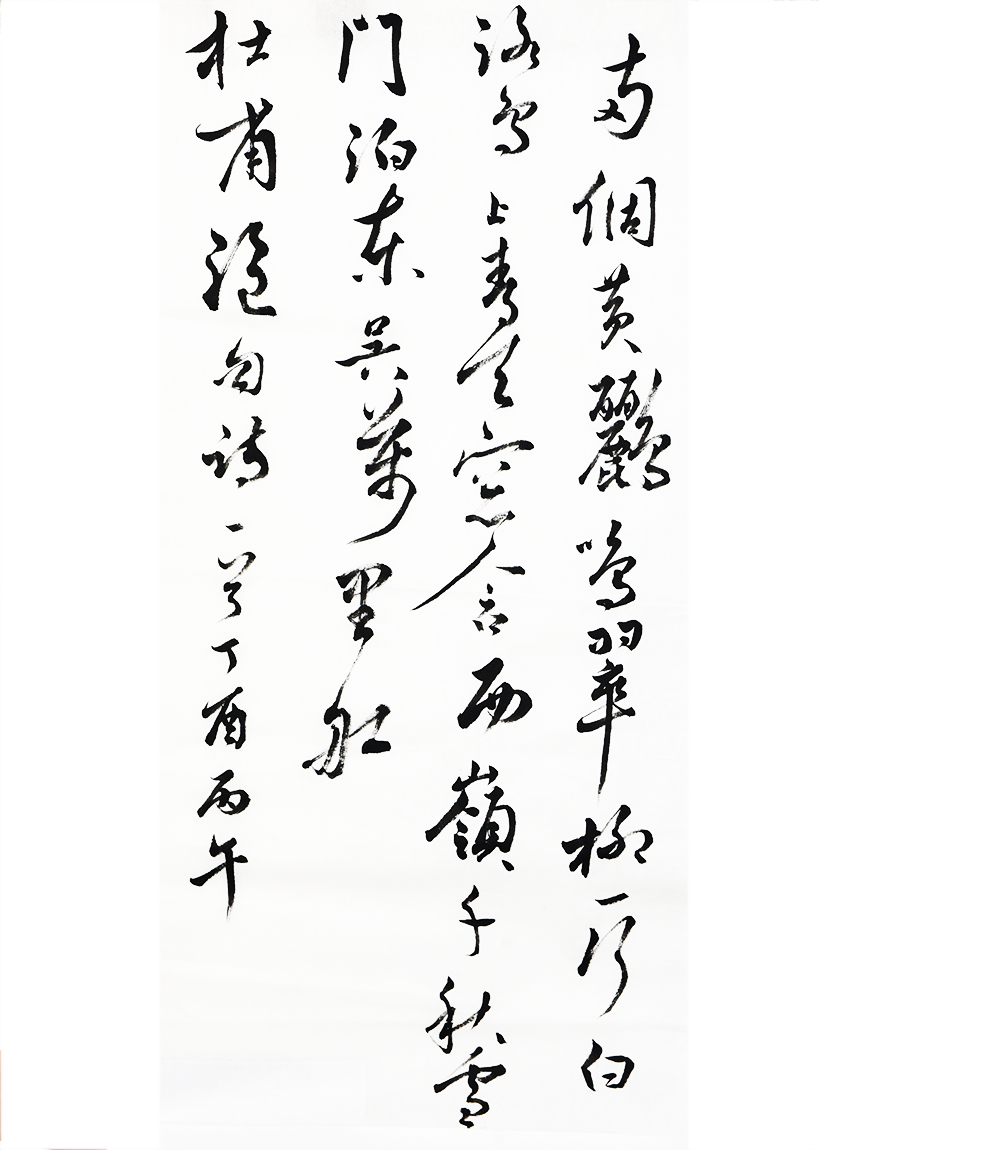 两個黄鸝鳴翠柳一行白
鹭上青天窓含西嶺千秋雪
門泊东吴萬里船
杜甫絶句诗 丁酉丙午